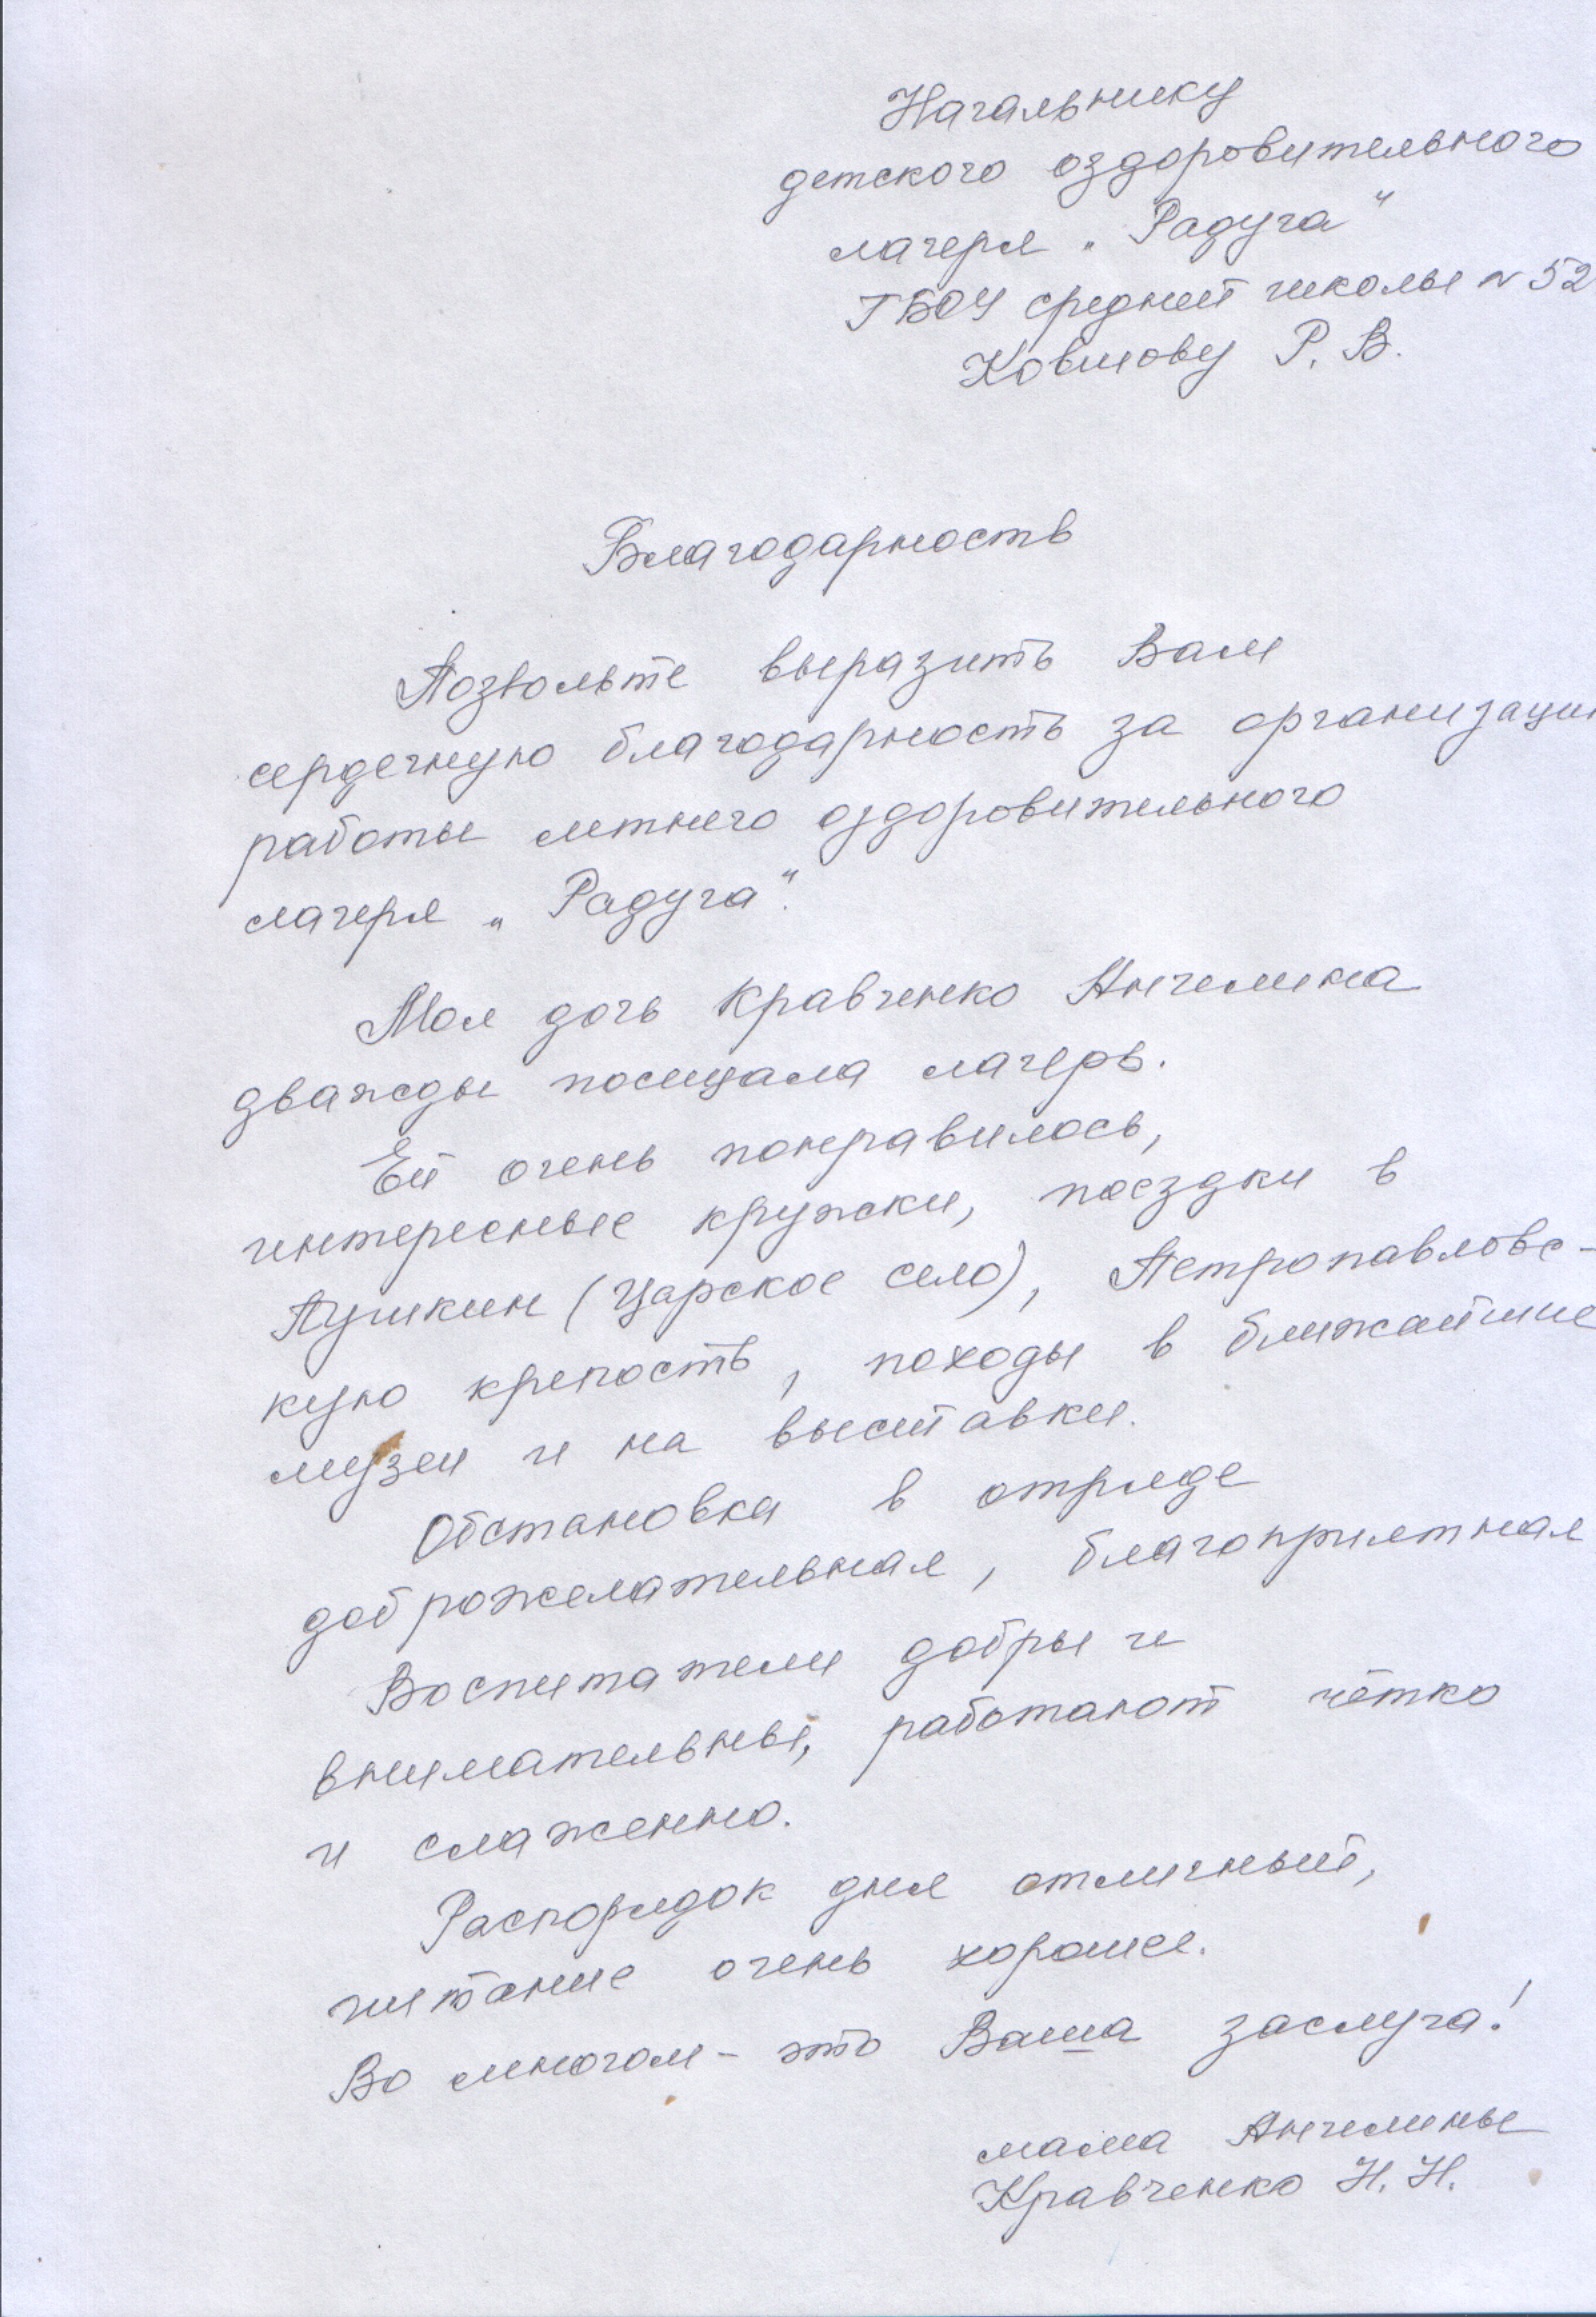 Начальнику
детского оздоровительного
лагеря „Радуга“
ГБОУ средней школы № 52
Ковшову Р. В.
Благодарность
Позвольте выразить Вам
сердечную благодарность за организаци
работы летнего оздоровительного
лагеря „Радуга“.
Моя дочь Кравченко Ангелина
дважды посещала лагерь.
Ей очень понравилось,
интересные кружки, поездки в
Пушкин (Царское село), Петропавловс-
кую крепость, походы в ближайшие
музеи и на выставки.
Обстановка в отряде
доброжелательная, благоприятная
Воспитатели добры и
внимательны, работают чётко
и слаженно.
Распорядок дня отличный,
питание очень хорошее.
Во многом - это Ваша заслуга!
мама Ангелины
Кравченко Н. Н.